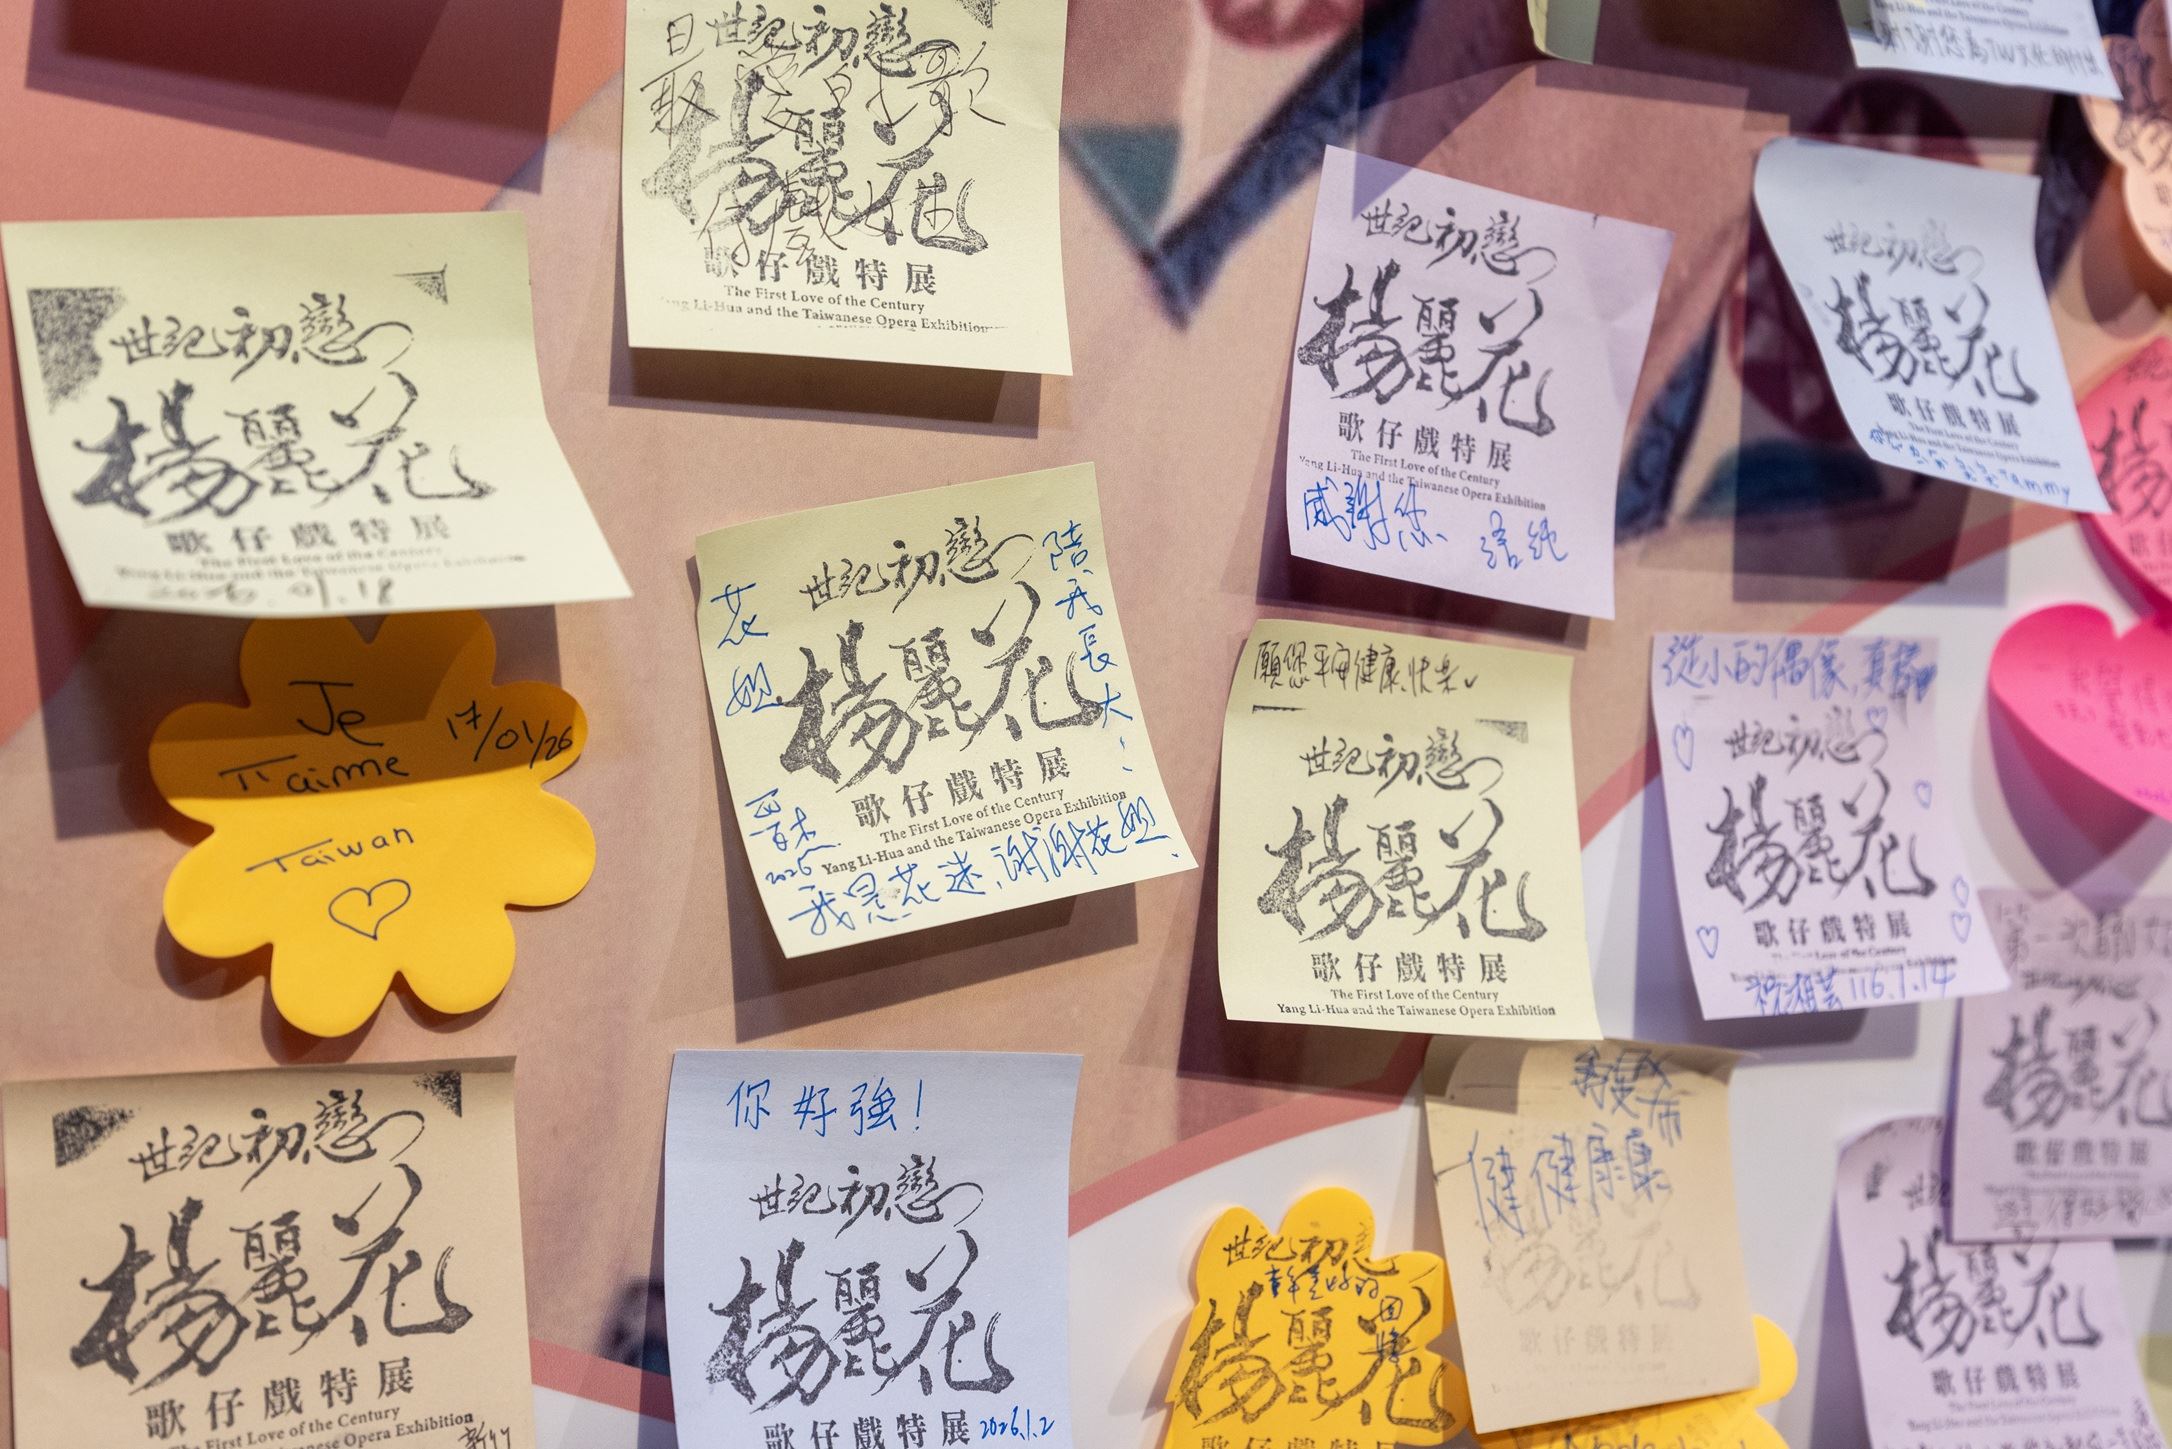 世紀初戀
楊麗花
歌仔戲特展
The First Love of the Century
Yang Li-Hua and the Taiwanese Opera Exhibition
世紀初戀
楊麗花
歌仔戲特展
The First Love of the Century
Yang Li-Hua and the Taiwanese Opera Exhibition
01.18
世紀初戀
楊麗花
歌仔戲特展
The First Love of the Century
Yang Li-Hua and the Taiwanese Opera Exhibition
感謝您
世紀初戀
楊麗花
歌仔戲特展
The First Love of the Century
Tammy
Je
T'aime
17/01/26
Taiwan
花姐
陪我長大
世紀初戀
楊麗花
歌仔戲特展
The First Love of the Century
Yang Li-Hua and the Taiwanese Opera Exhibition
2026
我是花迷,謝謝花姐
願您平安健康快樂
世紀初戀
楊麗花
歌仔戲特展
The First Love of the Century
Yang Li-Hua and the Taiwanese Opera Exhibition
從小的偶像,真棒
世紀初戀
楊麗花
歌仔戲特展
116.1.14
第一次
楊麗花
歌仔戲特展
世紀初戀
楊麗花
歌仔戲特展
The First Love of the Century
Taiwanese Opera Exhibition
你好強!
世紀初戀
楊麗花
歌仔戲特展
2026.1.2
世紀初戀
楊麗花
歌仔戲特展
健健康康
楊麗花
歌仔戲特展
楊麗花
歌仔戲特展